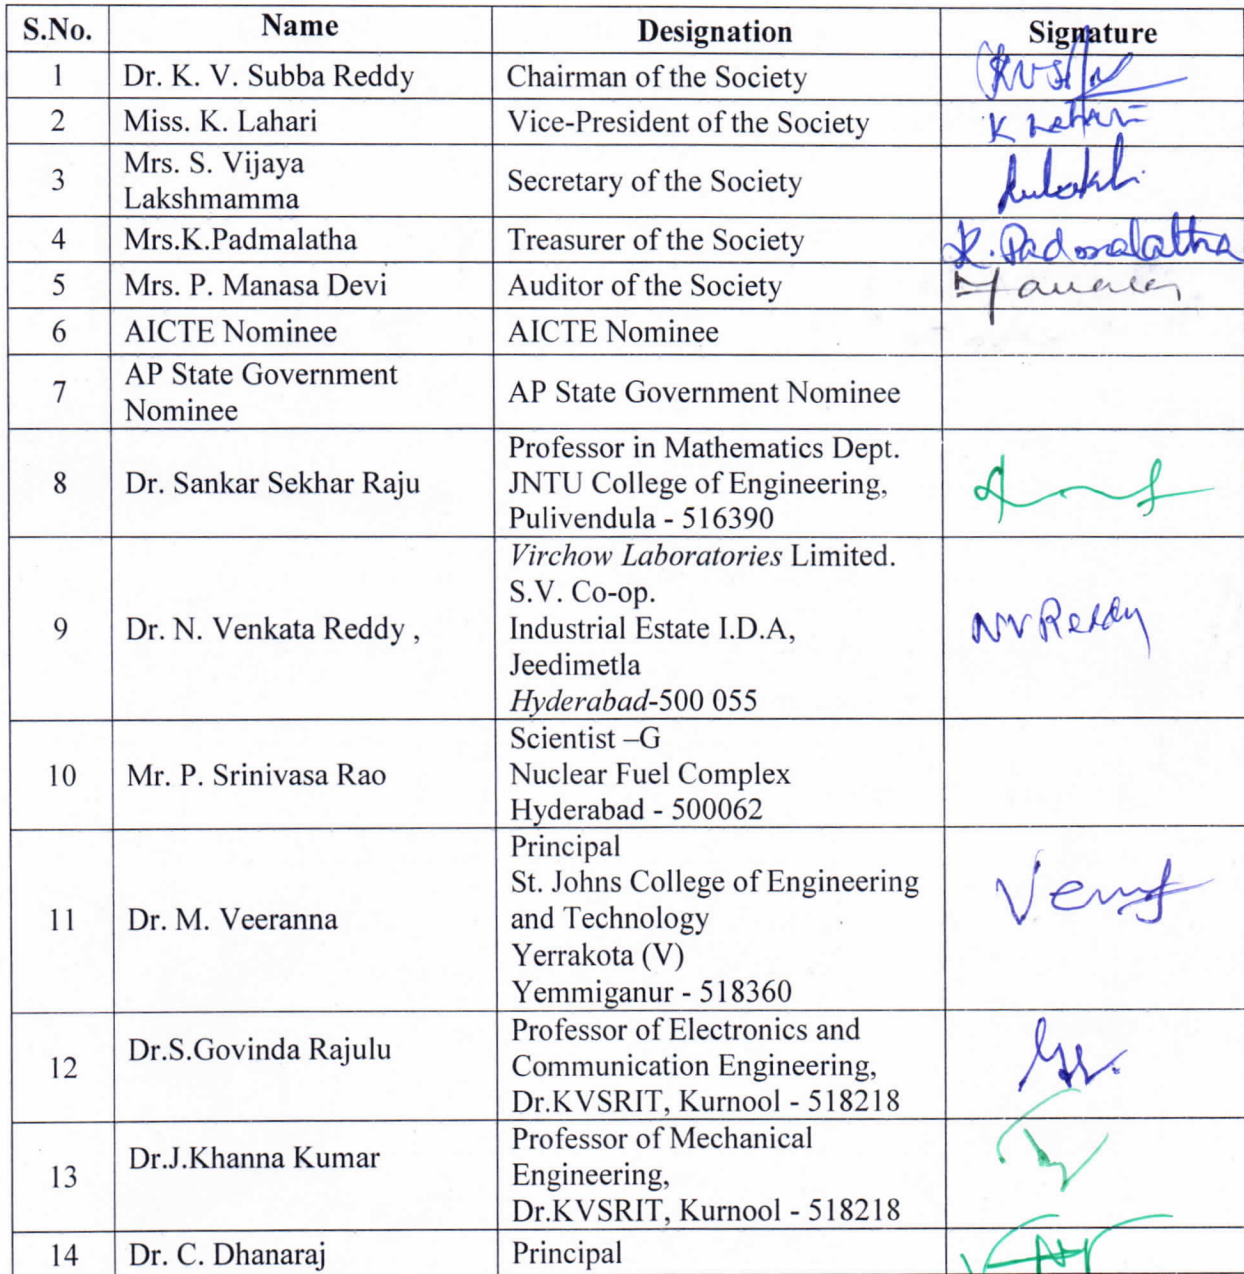 S.No. Name Designation Signature
1 Dr. K. V. Subba Reddy Chairman of the Society
2 Miss. K. Lahari Vice-President of the Society K Lahari
3 Mrs. S. Vijaya
Lakshmamma Secretary of the Society
4 Mrs.K.Padmalatha Treasurer of the Society K. Padmalatha
5 Mrs. P. Manasa Devi Auditor of the Society
6 AICTE Nominee AICTE Nominee
7 AP State Government
Nominee AP State Government Nominee
8 Dr. Sankar Sekhar Raju Professor in Mathematics Dept.
JNTU College of Engineering,
Pulivendula - 516390
9 Dr. N. Venkata Reddy , Virchow Laboratories Limited.
S.V. Co-op.
Industrial Estate I.D.A,
Jeedimetla
Hyderabad-500 055
NV Reddy
10 Mr. P. Srinivasa Rao Scientist –G
Nuclear Fuel Complex
Hyderabad - 500062
11 Dr. M. Veeranna Principal
St. Johns College of Engineering
and Technology
Yerrakota (V)
Yemmiganur - 518360
12 Dr.S.Govinda Rajulu Professor of Electronics and
Communication Engineering,
Dr.KVSRIT, Kurnool - 518218
13 Dr.J.Khanna Kumar Professor of Mechanical
Engineering,
Dr.KVSRIT, Kurnool - 518218
14 Dr. C. Dhanaraj Principal